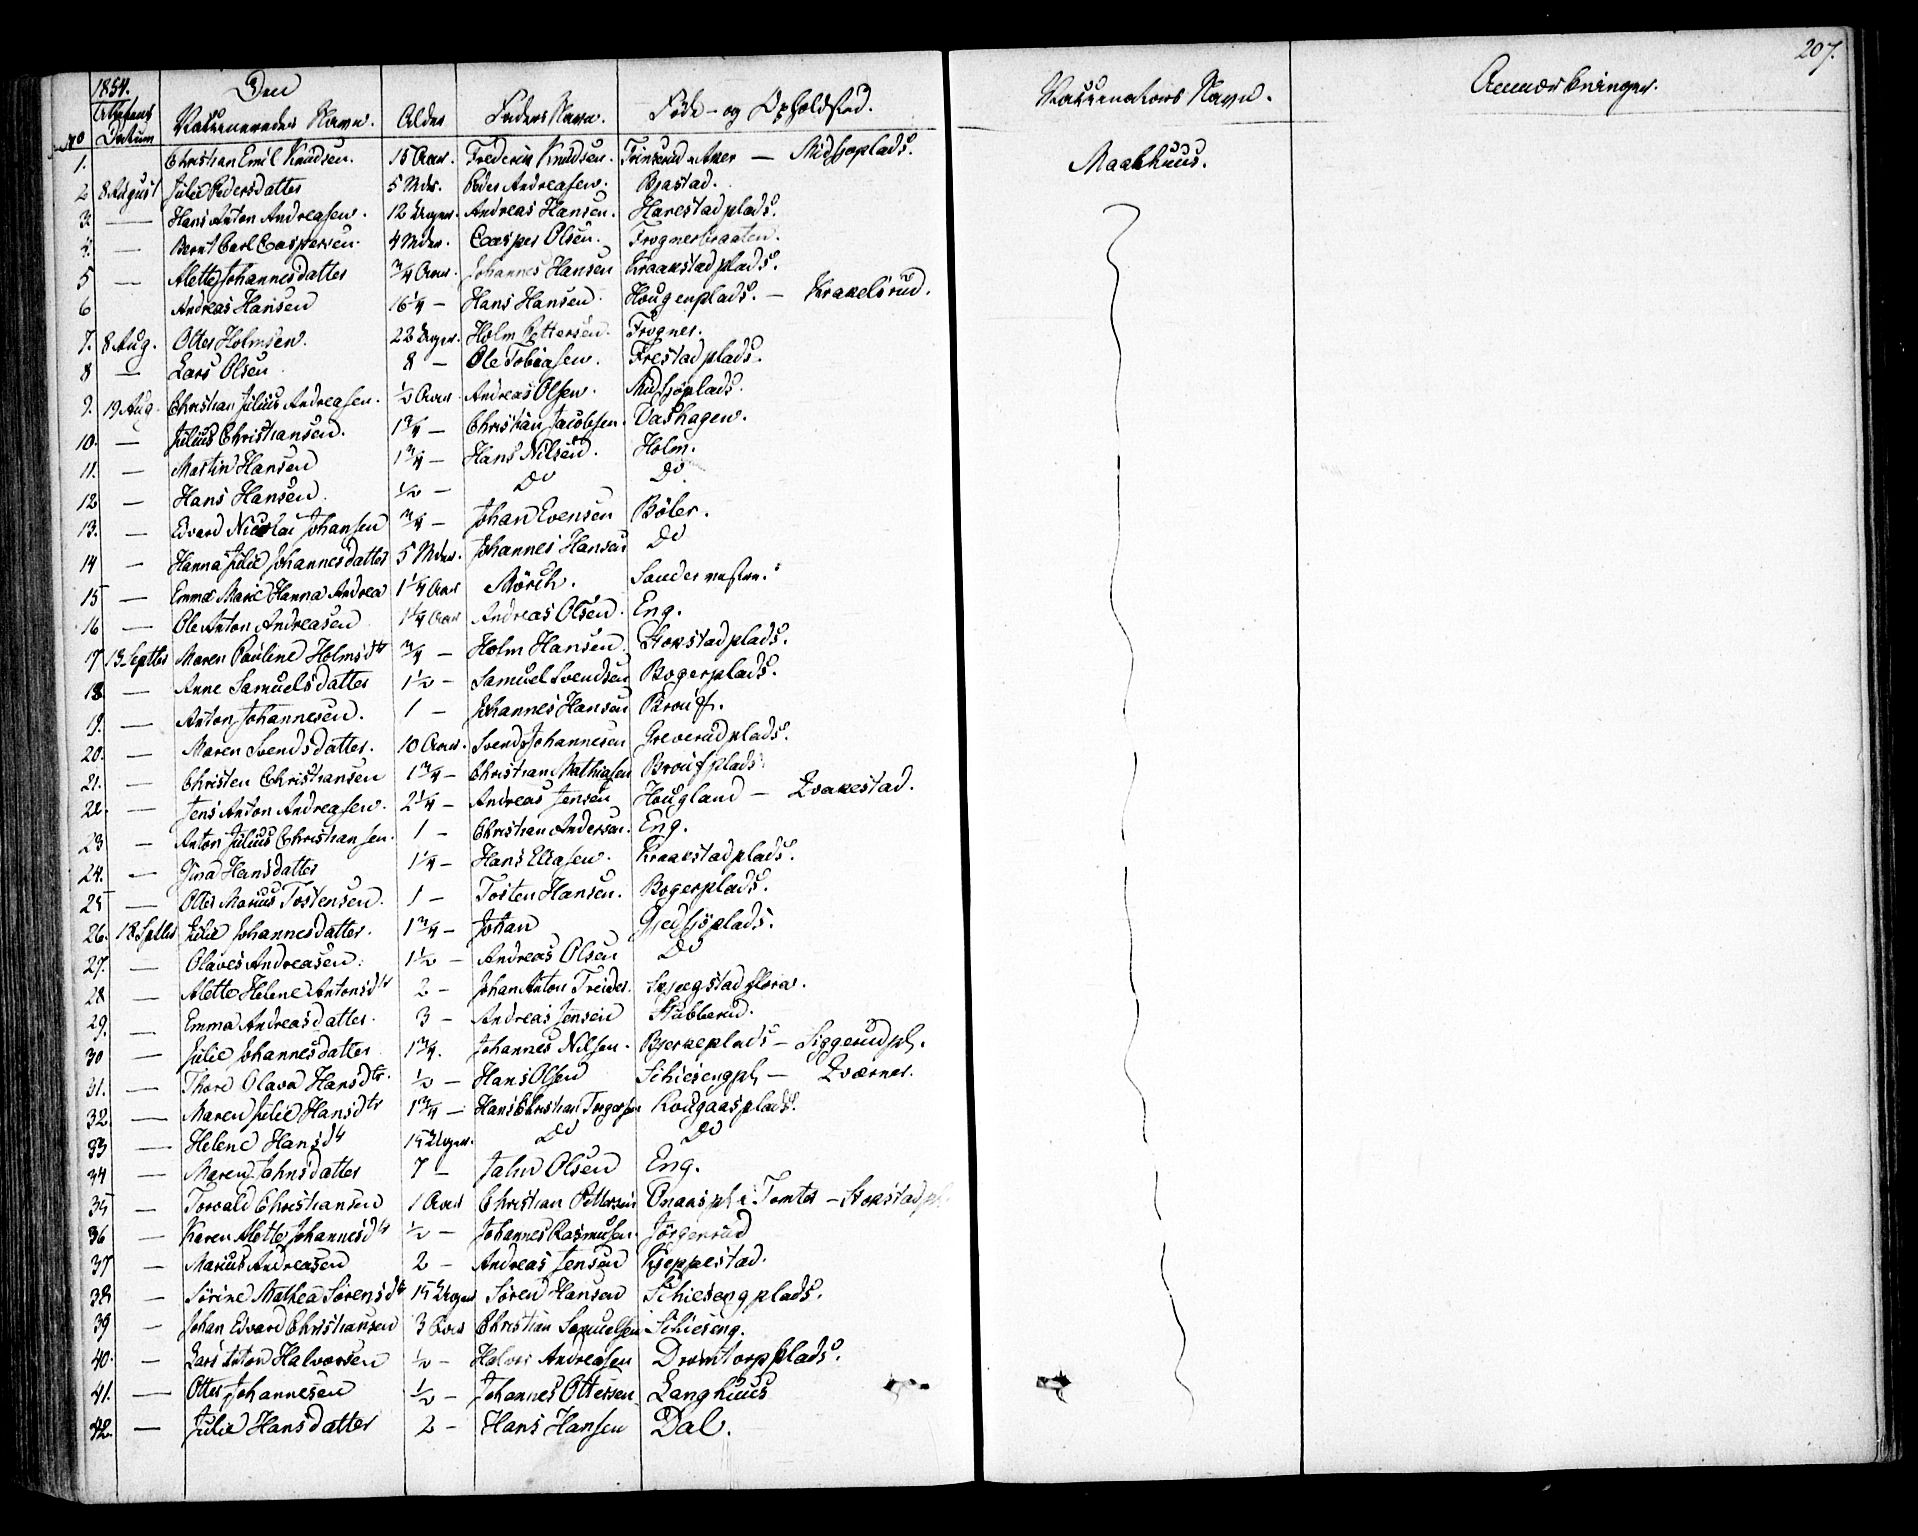 207.
1854. Den
No Attestens Datum Vaccineredes Navn. Alder Faders Navn. Føde- og Opholdsted. Vaccinatørs Navn. Anmærkninger.
1. Christian Emil Knudsen. 15 Aar. Frederik Knudsen. Trinserud Aker — Midsjøplads. Maakhuus.
2 8 August Julie Pedersdatter 5 Mdr. Peder Andreasen. Bjastad.
3. — Hans Anton Andreasen. 12 Uger. Andreas Hansen. Harestadplads.
4. — Bernt Carl Caspersen. 4 Mdr. Casper Olsen. Frognerbraaten.
5 — Alette Johannesdatter 3/4 Aar. Johannes Hansen Kraakstadplads.
6 Andreas Hansen 16 1/4 — Hans Hansen. Hougenplads. — Krakelsrud.
7. 8 Aug. Otter Holmsen. 22 Uger. Holm Pettersen. Frogner.
8 — Lars Olsen 8 — Ole Tobiasen. Frestadplads.
9. 19 Aug. Christian Julius Andreasen. 1/2 Aar. Andreas Olsen. Midsjøplads.
10. — Julius Christiansen. 1 3/4 — Christian Jacobsen. Vashagen.
11. — Martin Hansen 1 3/4 — Hans Nilsen. Holm.
12 — Hans Hansen. 1/2 — Do Do
13. — Edvard Nicolai Johansen 3/4 — Johan Evensen Böler.
14 — Hanna Julie Johannesdatter 5 Mdr. Johannes Hansen Do
15 — Emma Marie Hanna Andrea 1 1/4 Aar Mörch. Sander
16 — Ole Anton Andreasen 1 1/4 Aar Andreas Olsen. Eng.
17 13 Septbr Maren Pauline Holmsdtr 3/4 — Holm Hansen. Stokstadplads.
18. — Anne Samuelsdatter 1 1/2 — Samuel Svendsen Bogerplads.
19. — Anton Johannesen. 1 — Johannes Hansen Brouf.
20. — Maren Svendsdatter. 10 Aar. Svend Johannesen Greverudplads.
21. — Christen Christiansen 1 3/4 — Christian Mathiasen Broufplads.
22. — Jens Anton Andreasen. 2 1/4 — Andreas Jensen Hougland — Kvakestad.
23 — Anton Julius Christiansen. 1 — Christian Andersen. Eng.
24. — Gina Hansdatter 1 1/4 — Hans Eliasen. Kraakstadplads.
25 — Otter Marius Tostensen. 1 — Tosten Hansen. Bogerplads.
26. 18 Septbr Julie Johannesdatter. 1 3/4 — Johan Gjedsjöplads.
27. — Olaves Andreasen. 1 1/2 — Andreas Olsen Do
28 — Alette Helene Antonsdtr 2 — Johan Anton Treider. Skjegstad
29. — Emma Andreasdatter. 3 — Andreas Jensen Stubberud.
30 — Julie Johannesdatter 1 3/4. Johannes Nilsen. Bjerkeplads — Siggerudpl.
31. — Thore Olava Hansdtr. 1/2 — Hans Olsen Schiesengpl — Kværner.
32. — Maren Julie Hansdtr 1 3/4 — Hans Christian Torgersen Rougaasplads.
33 — Helene Hansdtr 15 Uger. Do Do
34 — Maren Jahnsdatter 7 — Jahn Olsen Eng.
35 — Torvald Christiansen 1 Aar Christian Pettersen Aaaspl i Tomter — Stokstadpl.
36 — Karen Alette Johannesdtr 1/2 — Johannes Rasmusen. Jörgensrud
37 — Marius Andreasen 2 — Andreas Jensen Kjeppestad.
38 — Sörine Mathea Sörensdtr 15 Uger Sören Hansen Schiesengplads.
39 — Johan Edvard Christiansen 3 Aar Christian Samuelsen Schieseng.
40. — Lars Anton Halvorsen 1/2 — Halvor Andreasen Drömtorpplads.
41. — Otter Johannesen 1/2 — Johannes Ottersen. Langhuus
42. — Julie Hansdatter 2 — Hans Hansen Dal.